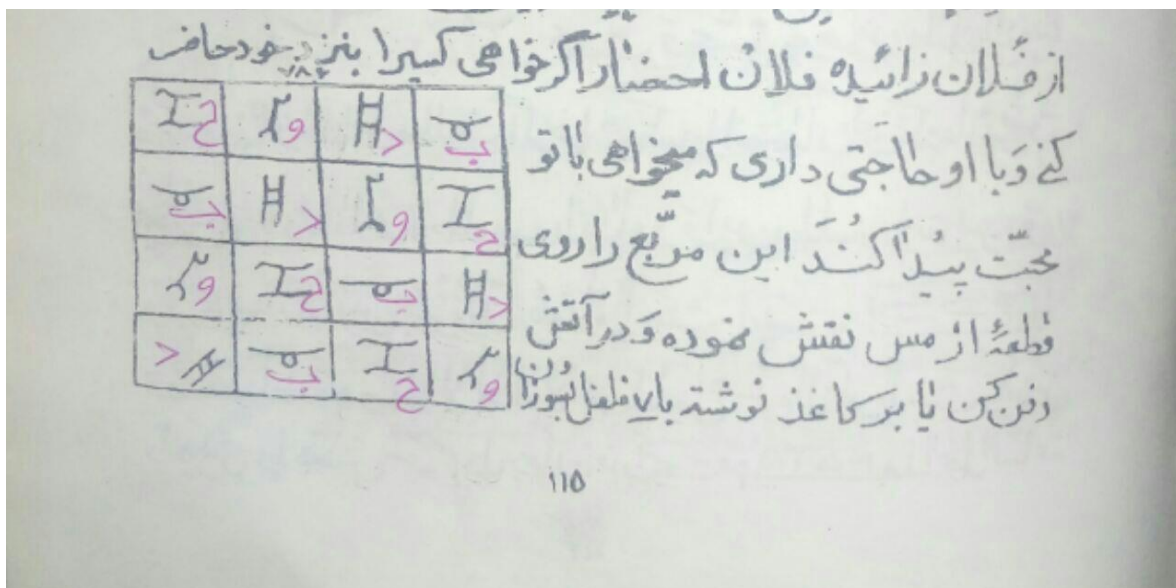 از فلان زائیده فلان احضار اگر خواهی کسیرا بنزد خود حاضر
کنے وَبا او حاجَتی داری که میخواهی باتو
محبّت پیدا کُنَد این مربّع را روی
قطعهٔ از مس نقش نموده وَ در آتش
دفن کن یا بر کاغذ نوشته با ۷ فلفل بسوزان
ب د و ح
ح و د ب
د ب ح و
و ح ب د
۱۱۵